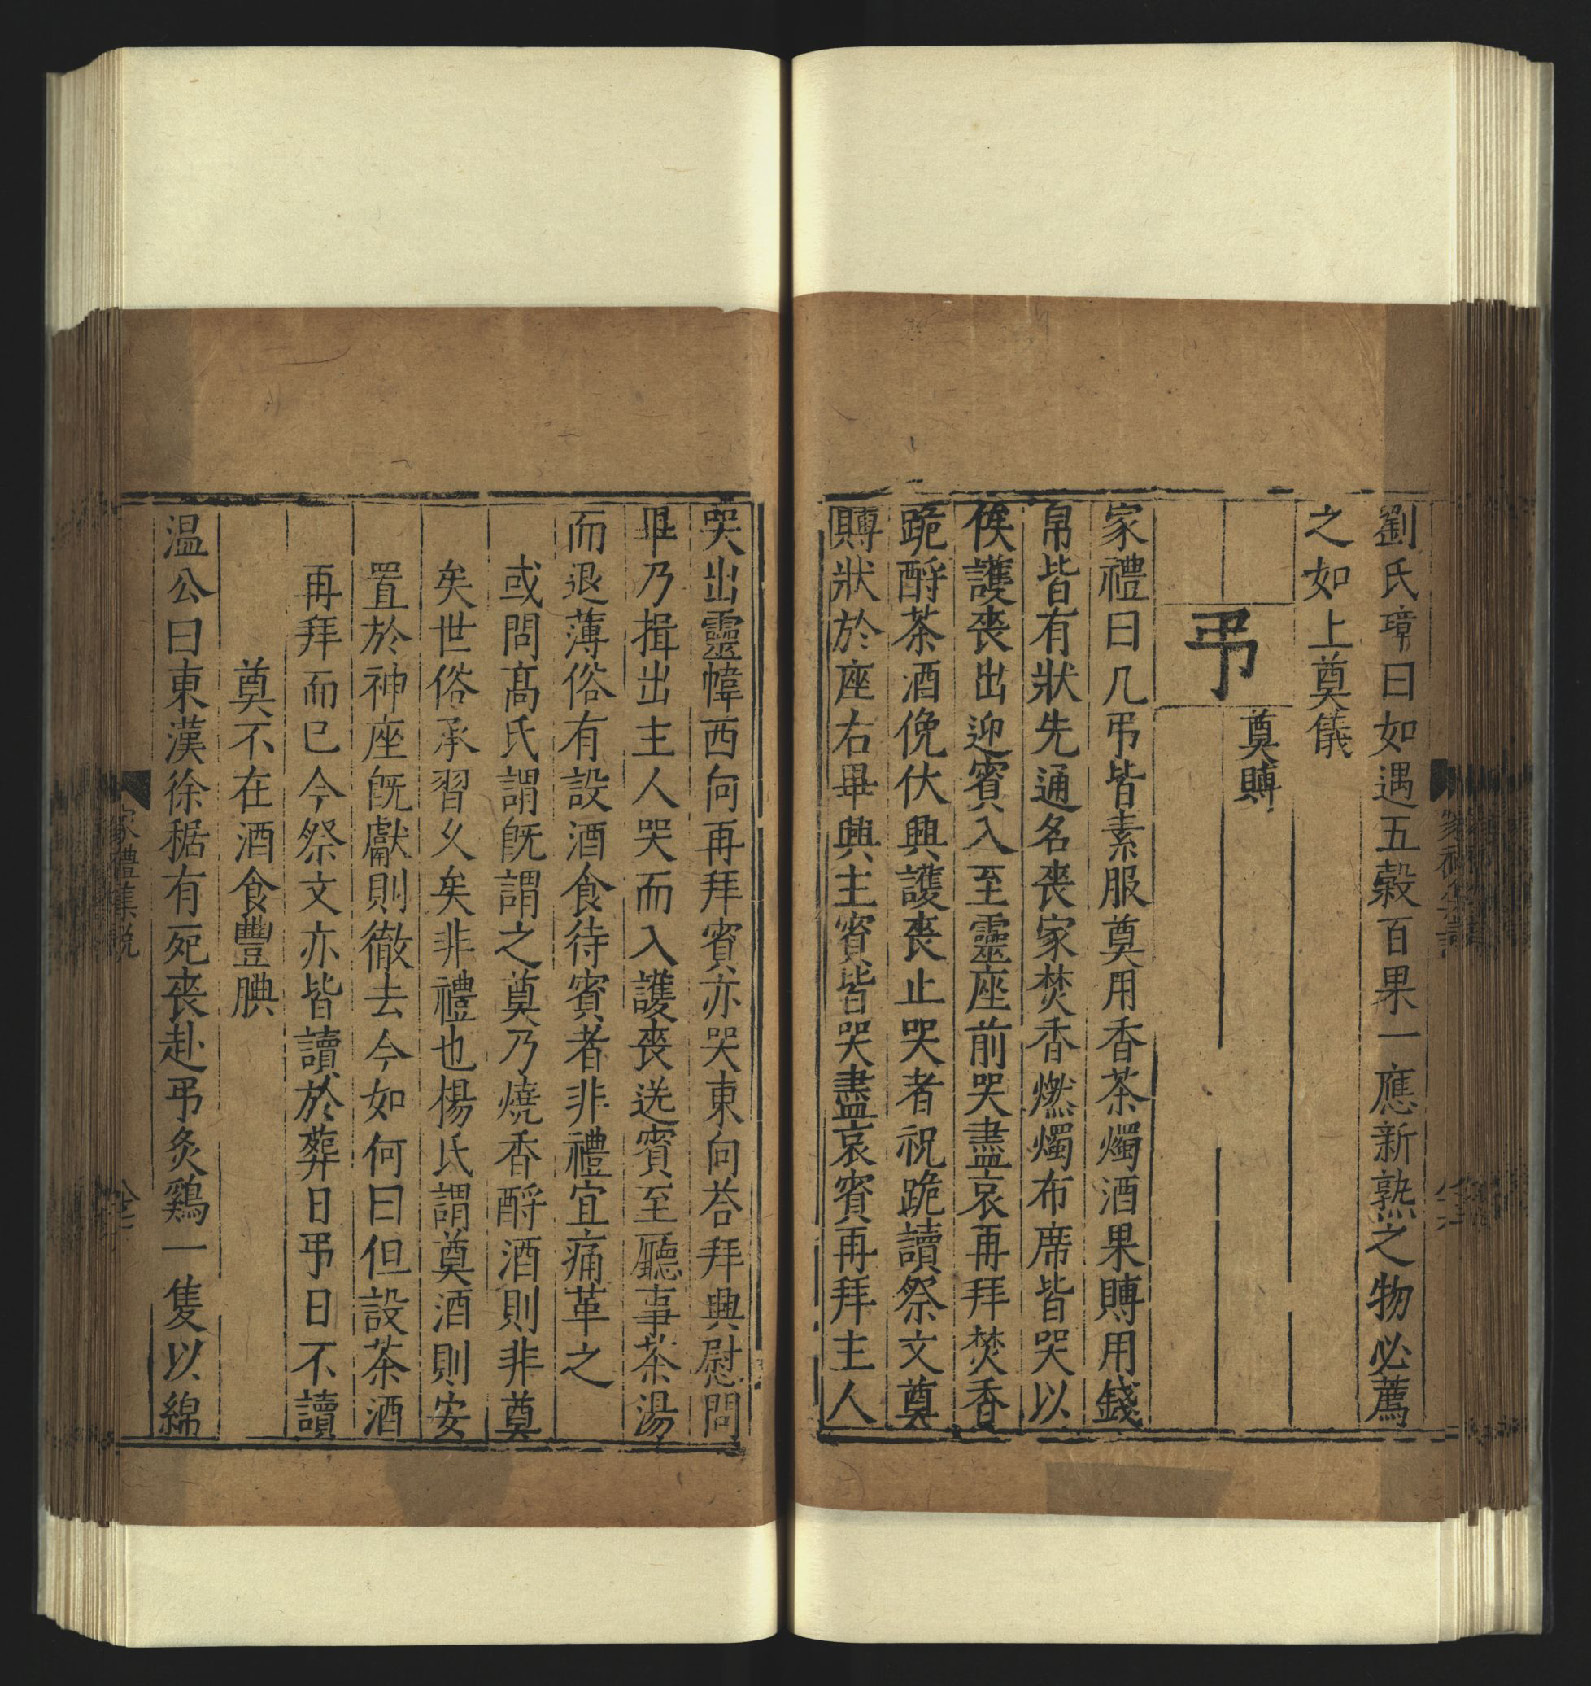 劉氏璋曰如遇五穀百果一應新熟之物必薦
之如上奠儀
弔
奠賻
家禮曰凡弔皆素服奠用香茶燭酒果賻用錢
帛皆有狀先通名喪家焚香燃燭布席皆哭以
俟護喪出迎賓入至靈座前哭盡哀再拜焚香
跪酹茶酒俛伏興護喪止哭者祝跪讀祭文奠
賻狀於座右畢興主賓皆哭盡哀賓再拜主人
哭出靈幃西向再拜賓亦哭東向荅拜興慰問
畢乃揖出主人哭而入護喪送賓至廳事茶湯
而退薄俗有設酒食待賓者非禮宜痛革之
或問髙氏謂旣謂之奠乃燒香酹酒則非奠
矣世俗承習乆矣非禮也楊氏謂奠酒則安
置於神座旣獻則徹去今如何曰但設茶酒
再拜而已今祭文亦皆讀於葬日弔日不讀
奠不在酒食豐腆
温公曰東漢徐稺有死喪赴弔炙鷄一隻以綿
家禮集説